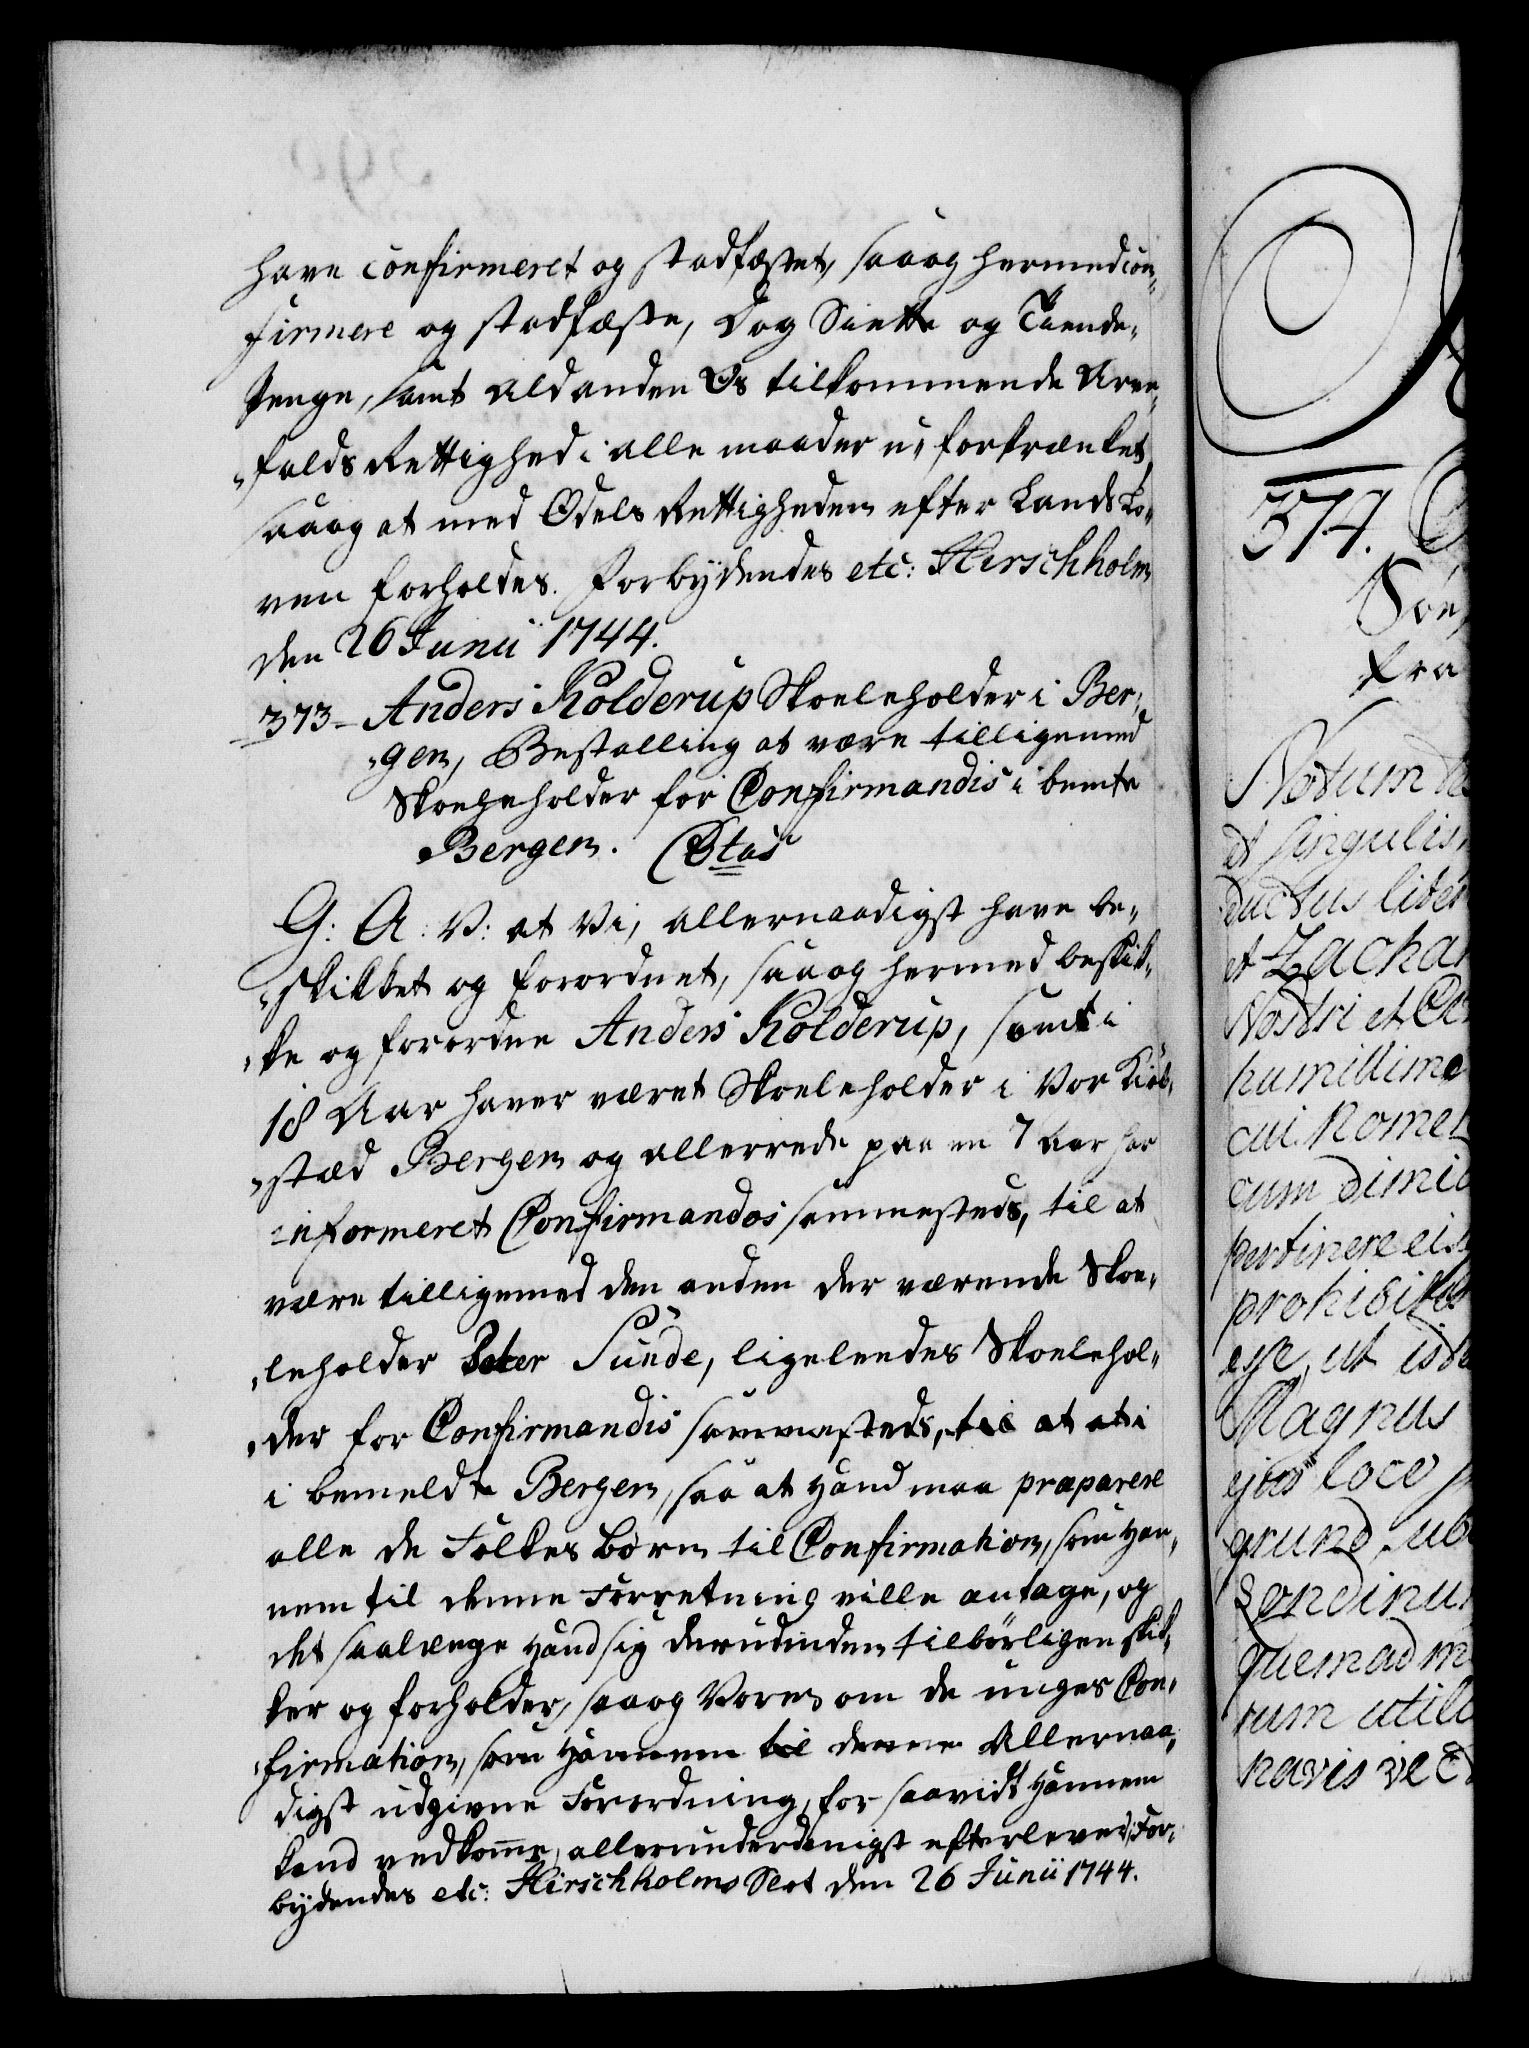 have confirmeret og stadfæstet, saaog hermed con-
firmere og stadfæste, Dog Siette og Tiende-
Penge, samt ald anden Os tilkommende Arve-
falds Rettighed i alle maader u-forkrænket,
saaog at med Odels Rettigheden efter Lands Lo-
ven forholdes. Forbydendes etc: Hirschholm
den 26 Junii 1744.
373- Anders Kolderup Skoeleholder i Ber-
gen, Bestalling at være tilligemed
Skoeleholder for Confirmandis i bemte
Bergen.
G: A: V: at Vi, allernaadigst have be-
skikket og forordnet, saaog hermed beskik-
ke og forordne Anders Kolderup, som i
18 Aar haver været Skoeleholder i Vor Kiøb-
stæd Bergen og allerrede paa en 7 Aar har
informeret Confirmandos sammesteds, til at
være tilligemed den anden der værende Skoe-
leholder Peter Sunde, ligeleedes Skoelehol-
der for Confirmandis sammesteds, til at
i bemeldte Bergen, saa at hand maa præparere
alle de Folkes Børn til Confirmation, som han-
nem til denne Forretning ville antage, og
det saalænge hand sig derudinden tilbørligen skik-
ker og forholder, saaog Vores om de unges Con-
firmation, som hannem til denne Allernaa-
digst udgivne Forordning, for saavidt hannem
kand vedkomme, allerunderdanigst efterlever, For-
bydendes etc: Hirschholms Slot den 26 Junii 1744.
374.
fra
Notum
et singulis,
ductus liber
et Zachar
Nostri et
humillime
cui nomen
cum dimid
pertinere eis
prohibit
esse, ut
Magnus
ejus loco
quemad m
rum utili
navis ve